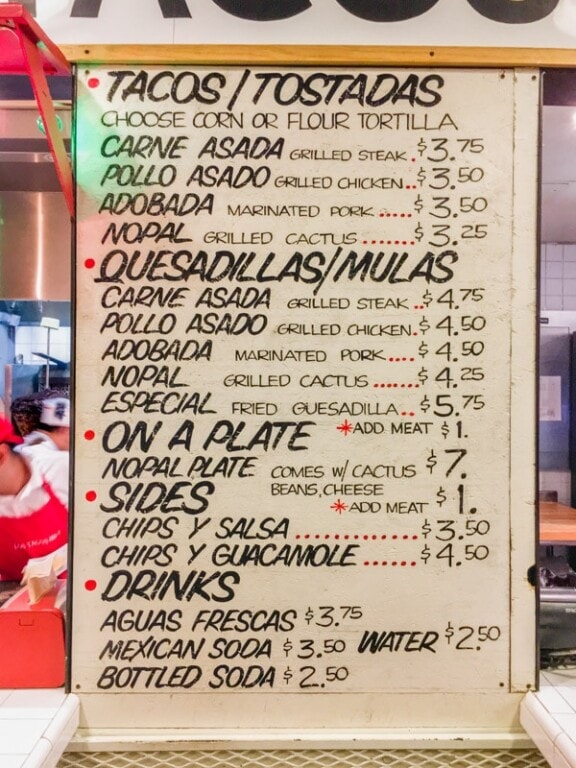 TACOS/TOSTADAS
CHOOSE CORN OR FLOUR TORTILLA
CARNE ASADA GRILLED STEAK . $3.75
POLLO ASADO GRILLED CHICKEN.. $3.50
ADOBADA MARINATED PORK ..... $3.50
NOPAL GRILLED CACTUS ........ $3.25
QUESADILLAS/MULAS
CARNE ASADA GRILLED STEAK .. $4.75
POLLO ASADO GRILLED CHICKEN. $4.50
ADOBADA MARINATED PORK .... $4.50
NOPAL GRILLED CACTUS ....... $4.25
ESPECIAL FRIED QUESADILLA.. $5.75
ON A PLATE *ADD MEAT $1.
NOPAL PLATE COMES W/ CACTUS $7.
BEANS, CHEESE
SIDES *ADD MEAT $1.
CHIPS Y SALSA ............. $3.50
CHIPS Y GUACAMOLE ...... $4.50
DRINKS
AGUAS FRESCAS $3.75
MEXICAN SODA $3.50 WATER $2.50
BOTTLED SODA $2.50